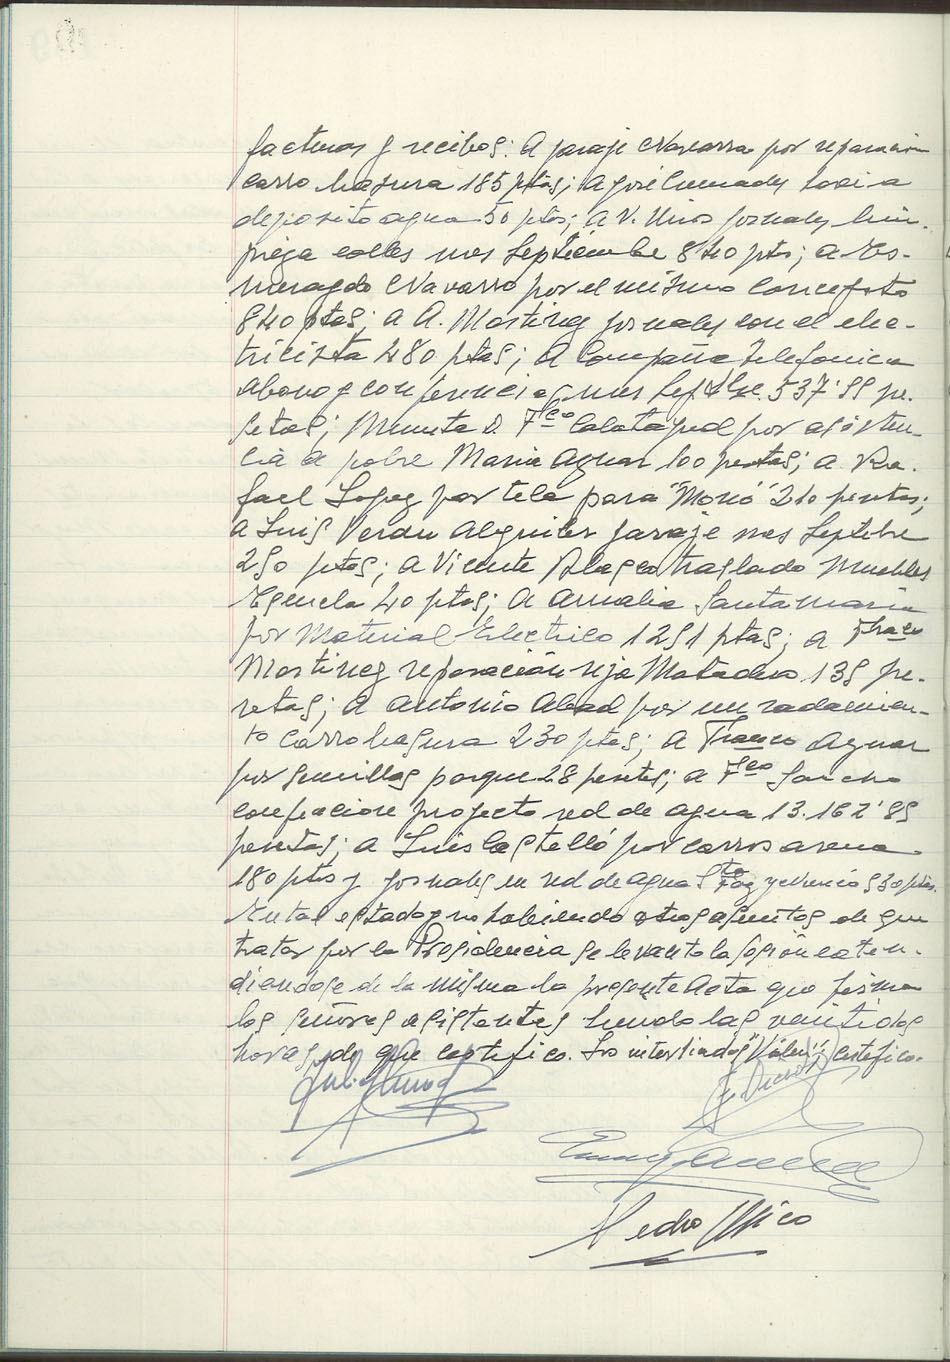 facturas y recibos: A garaje Navarro por reparación
carro basura 185 ptas; a José
deposito agua 50 ptas; a V. Mirós jornales lim-
pieza calles mes Septiembre 840 pts; a Es-
meragdo Navarro por el mismo concepto
840 ptas; a A. Martinez jornales con el elec-
tricista 480 ptas; a Compañia Telefonica
abono y conferencias mes Septbre. 537'55 pe-
setas; Minuta D. Fco Calatayud por asisten-
cia a pobre Maria Aznar 100 pesetas; a Ra-
fael Lopez por tela para "Monó" 210 pesetas;
a Luis Verdu Alquiler garaje mes Septbre
250 ptas; a Vicente traslado Muebles
Escuela 40 ptas; a Amalia Santamaria
por Material Electrico 1251 ptas; a Franco
Martinez reparación reja Matadero 135 pe-
setas; a Antonio Abad por un rodamien-
to carro basura 230 ptas; a Franco Aznar
por semillas parque 28 pesetas; a Fco Sancho
confeccion proyecto red de agua 13.162'85
pesetas; a Luis Castelló por carros arena
180 ptas y jornales en red de agua 530 ptas.
En tal estado y no habiendo otros asuntos de que
tratar por la Presidencia se levantó la sesión exten-
diendose de la misma la presente Acta que firman
los señores asistentes siendo las veintidos
horas, de que certifico. Lo interliniado certifico.
Pedro Mico